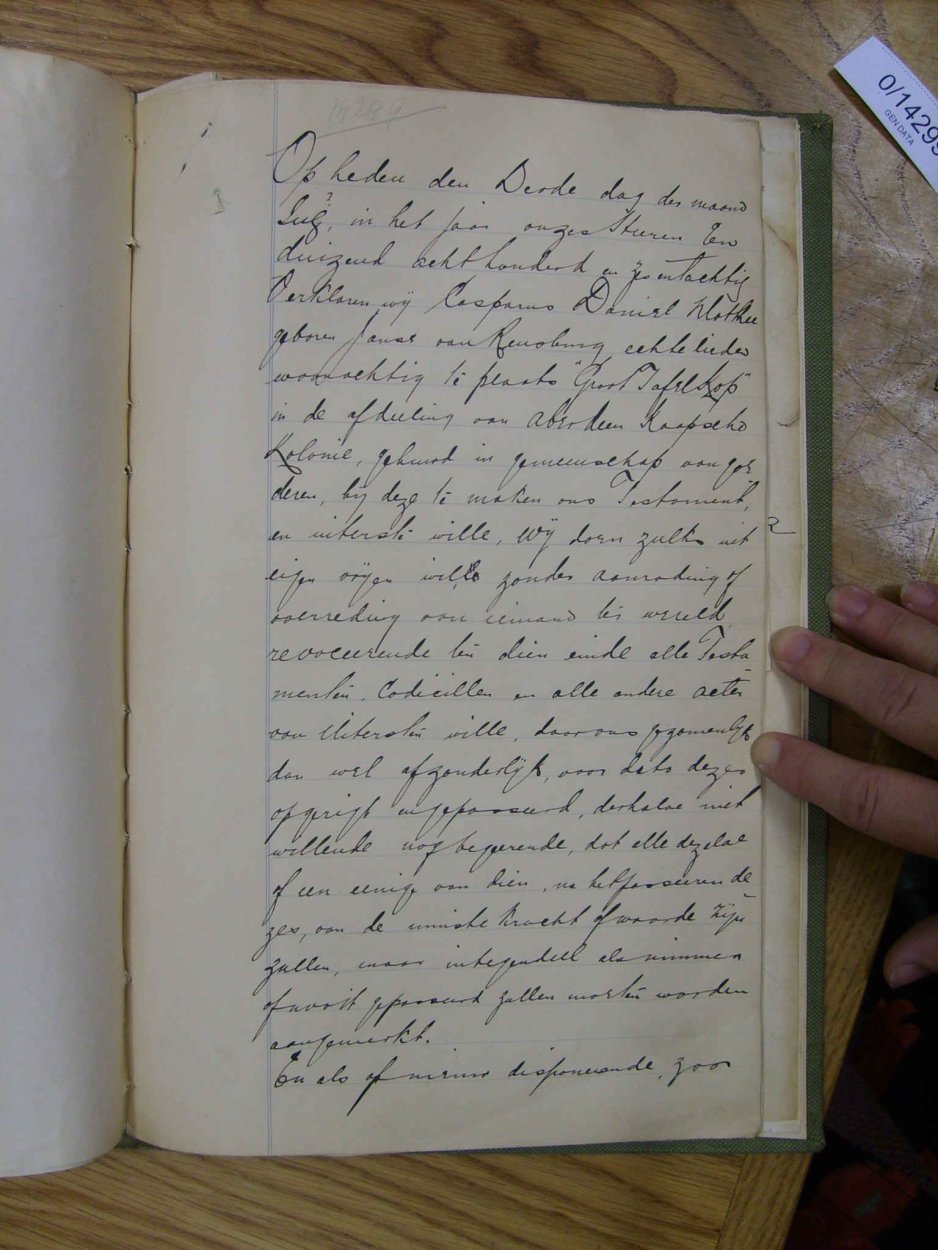 14299
0/14299
GEN DATA
Op heden den Derde dag der maand
in het jaar onzes Heeren Een
duizend acht honderd en zesentachtig
Verklaren wij Casparus Daniel
geboren Janse van Rensburg echtelieden
woonachtig te plaats "Groot Tafelkop"
in de afdeeling van Aberdeen Kaapsche
Kolonie, gehuwd in gemeenschap van goe
deren, bij deze te maken ons Testament,
en uiterste wille, Wij doen zulks uit
2
eigen vrijen wille zonder aanrading of
overreding van iemand ter wereld,
revoceerende ten dien einde alle Testa
menten, Codicillen en alle andere acten
van Uitersten wille, door ons gezamenlijk
dan wel afzonderlijk, voor dato dezes
opgerigt en gepasseerd, derhalve niet
willende nog begeerende, dat alle dezelve
of een eenige van dien, na het passeeren de
zes, van de minste kracht of waarde zijn
zullen, maar integendeel als nimmer
of nooit gepasseerd zullen moeten worden
aangemerkt.
En als of nieuw disponeerende, zoo